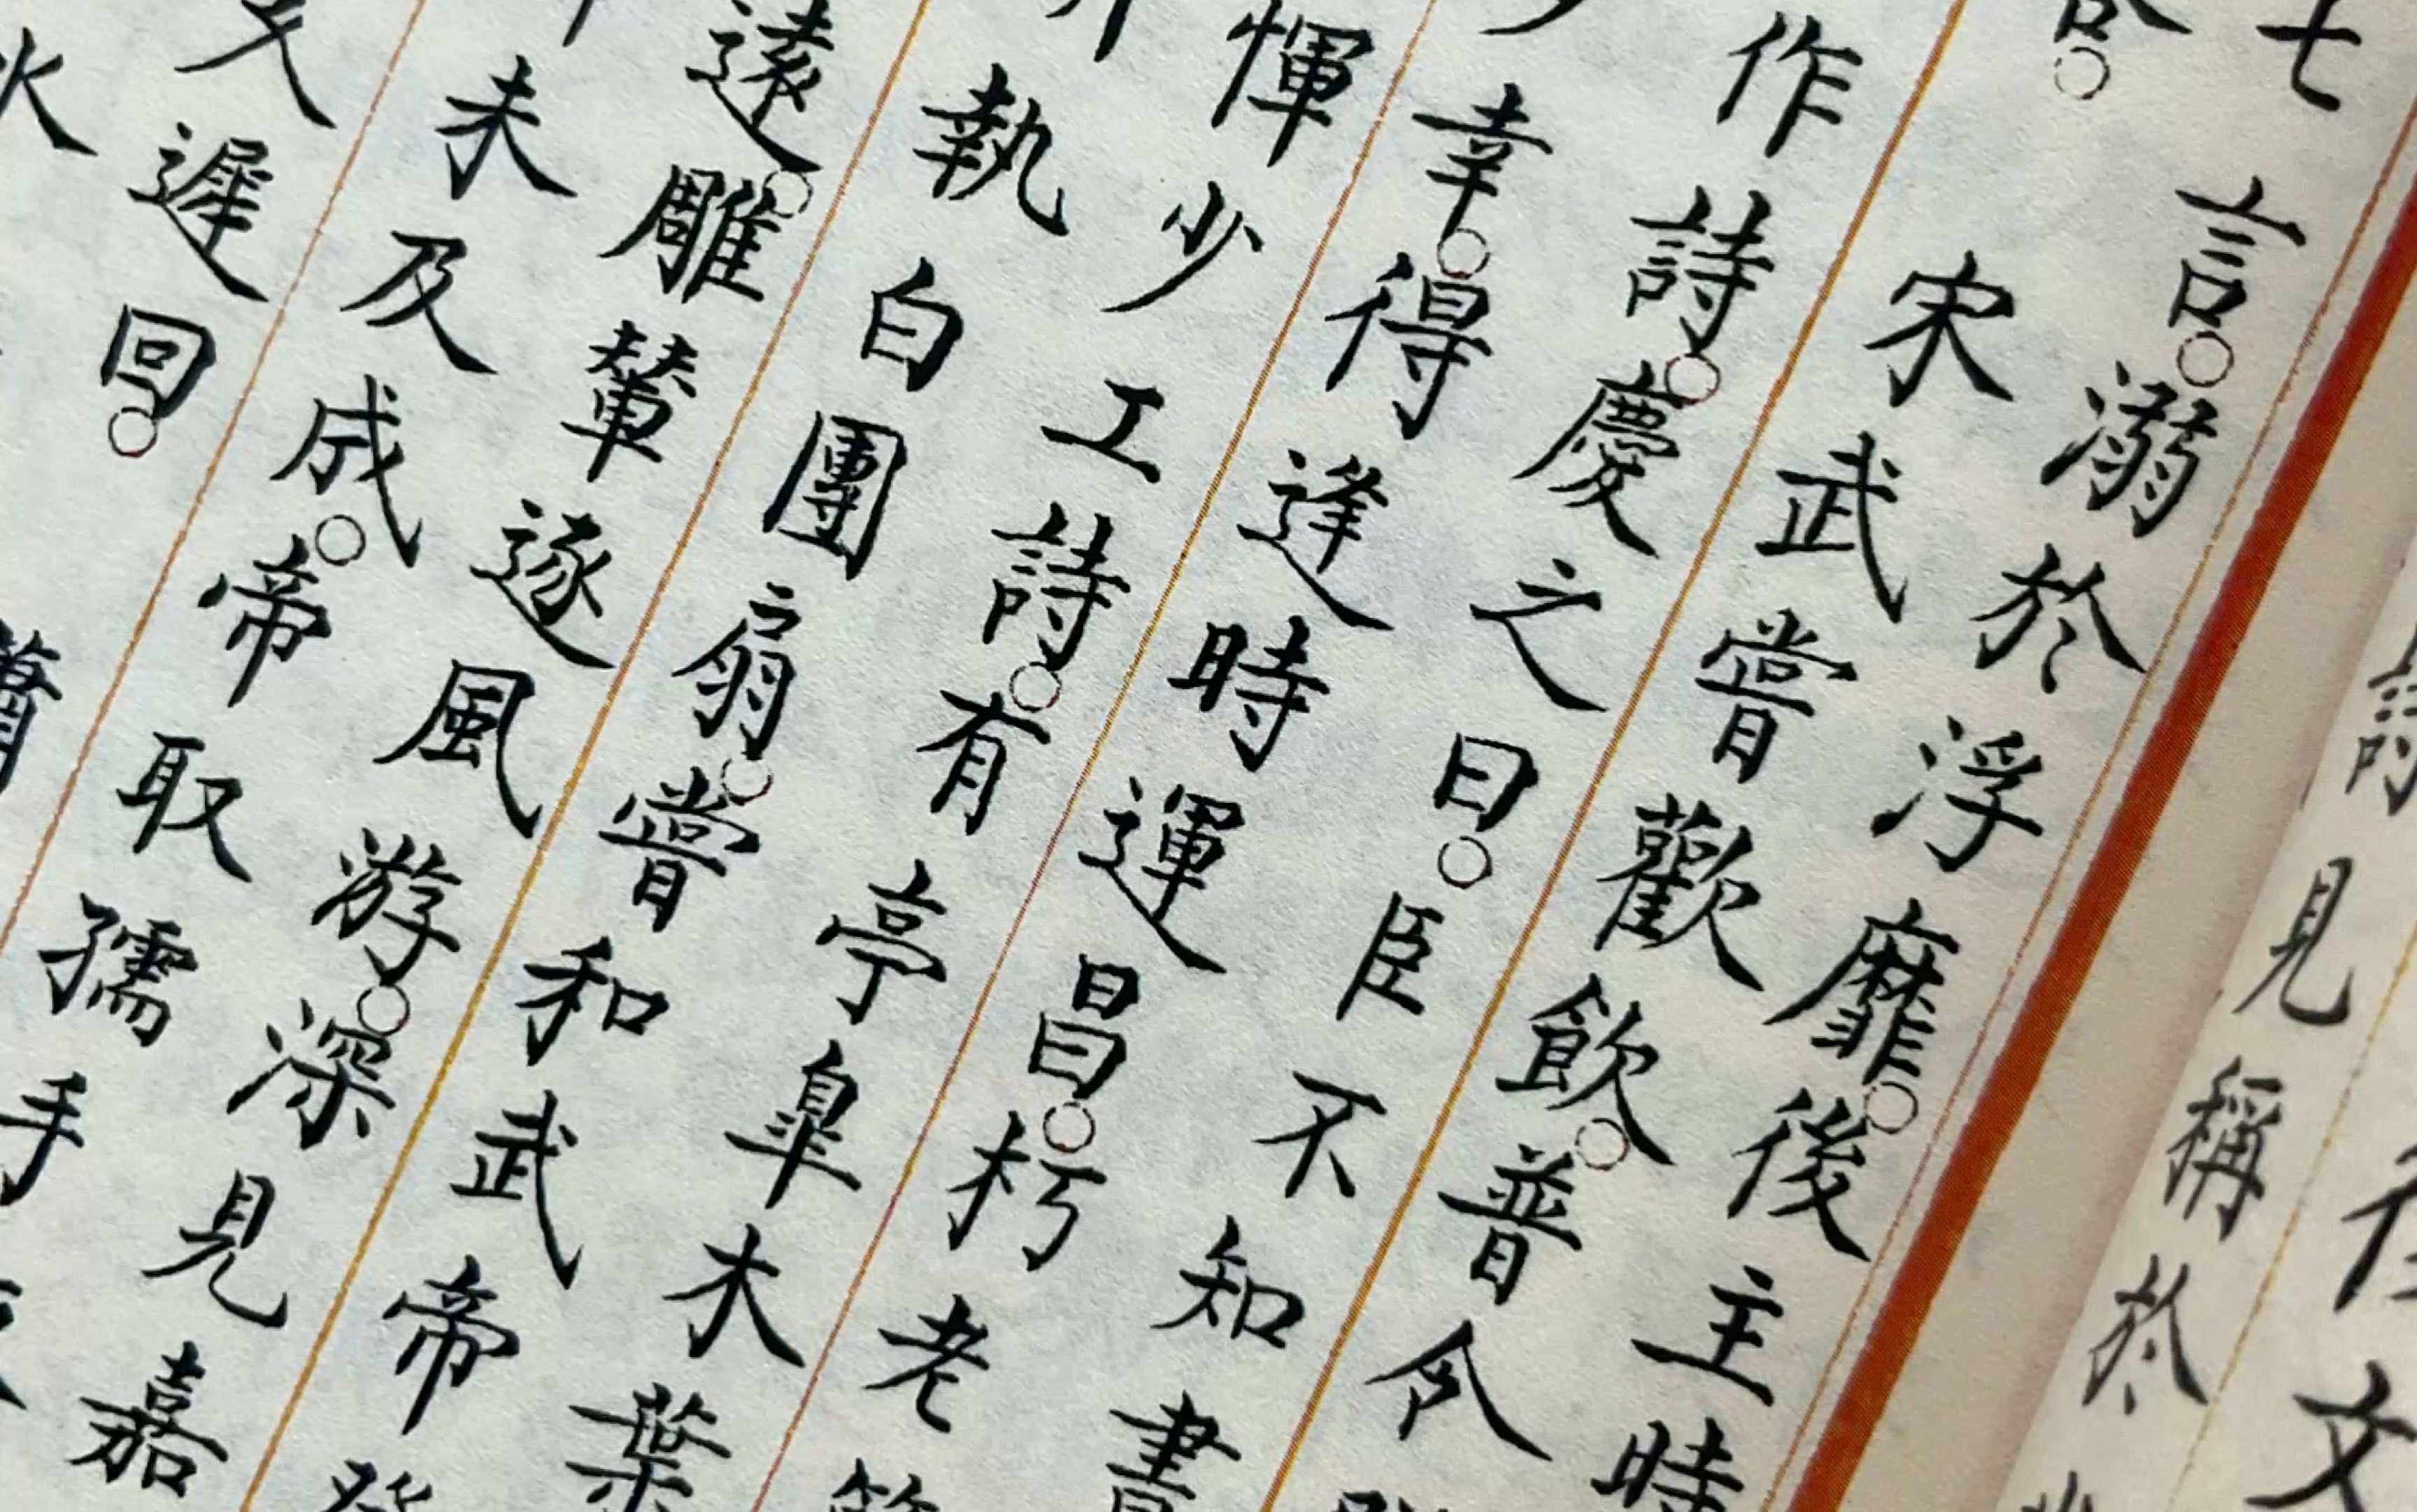 文
詩見稱於
七言。溺於浮靡。後主時
宋武嘗歡飲。普令
作詩。慶之曰。臣不知書
幸。得逢時運昌。朽老
惲少工詩。有亭皐木葉
執白團扇。嘗和武帝登
遠。雕輦逐風游。深見嘉
未及成。帝取孺手
久遲回。
水